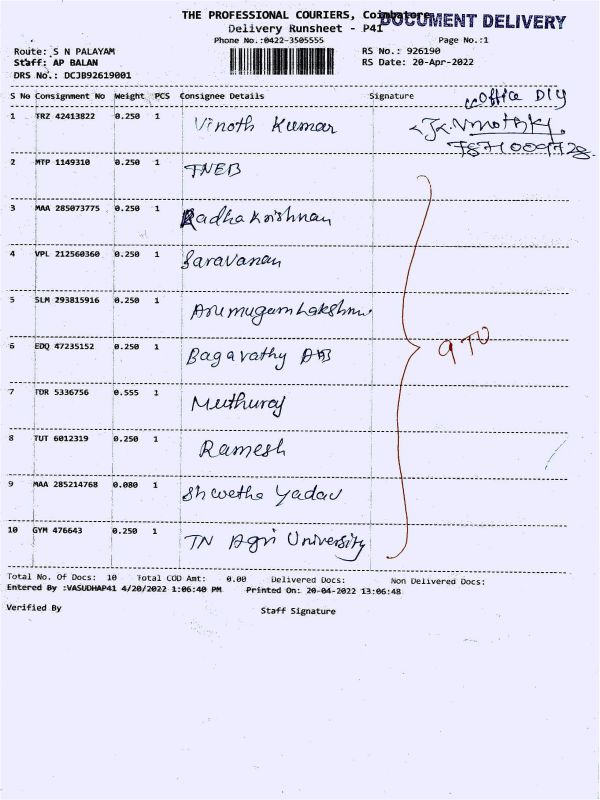 THE PROFESSIONAL COURIERS, Coimbatore
DOCUMENT DELIVERY
Delivery Runsheet - P41
Phone No.:0422-3505555
Page No.:1
Route: S N PALAYAM
RS No.: 926190
Staff: AP BALAN
RS Date: 20-Apr-2022
DRS No.: DCJB92619001
S No Consignment No Weight PCS Consignee Details Signature
office DIY
1 TRZ 42413822 0.250 1 Vinoth Kumar
7871009728
2 MTP 1149310 0.250 1 TNEB
3 MAA 285073775 0.250 1 Radha Krishnan
4 VPL 212560360 0.250 1 Saravanan
5 SLM 293815916 0.250 1 Arumugam Lakshmi
6 EDQ 47235152 0.250 1 Bagavathy
7 TDR 5336756 0.555 1 Muthuraj
8 TUT 6012319 0.250 1 Ramesh
9 MAA 285214768 0.080 1 Shwetha Yadav
10 GYM 476643 0.250 1 TN Agri University
Total No. Of Docs: 10 Total COD Amt: 0.00 Delivered Docs: Non Delivered Docs:
Entered By :VASUDHAP41 4/20/2022 1:06:40 PM Printed On: 20-04-2022 13:06:48
Verified By Staff Signature